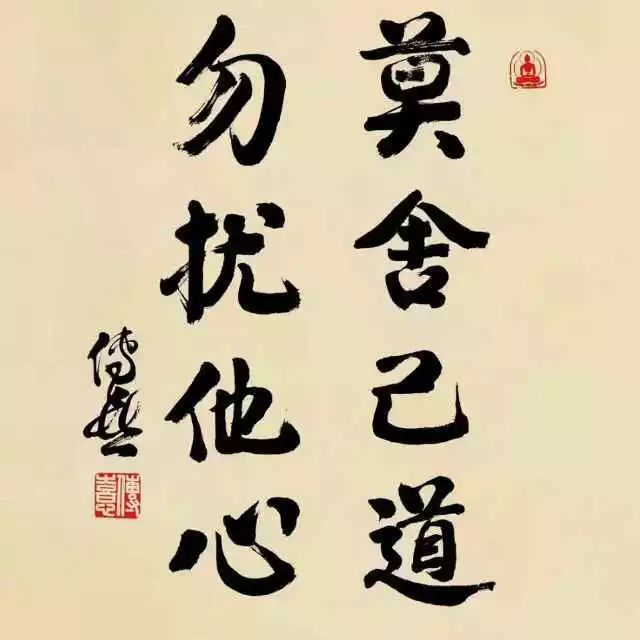 莫舍己道
勿扰他心
传喜